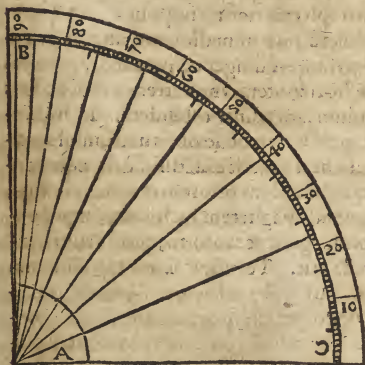 90
80
70
60
50
40
30
20
10
B
A
C